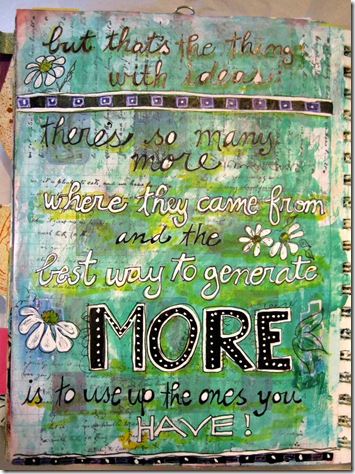 but that's the thing
with ideas.
there's so many
more
where they came from
and the
best way to generate
MORE
is to use up the ones you
HAVE!